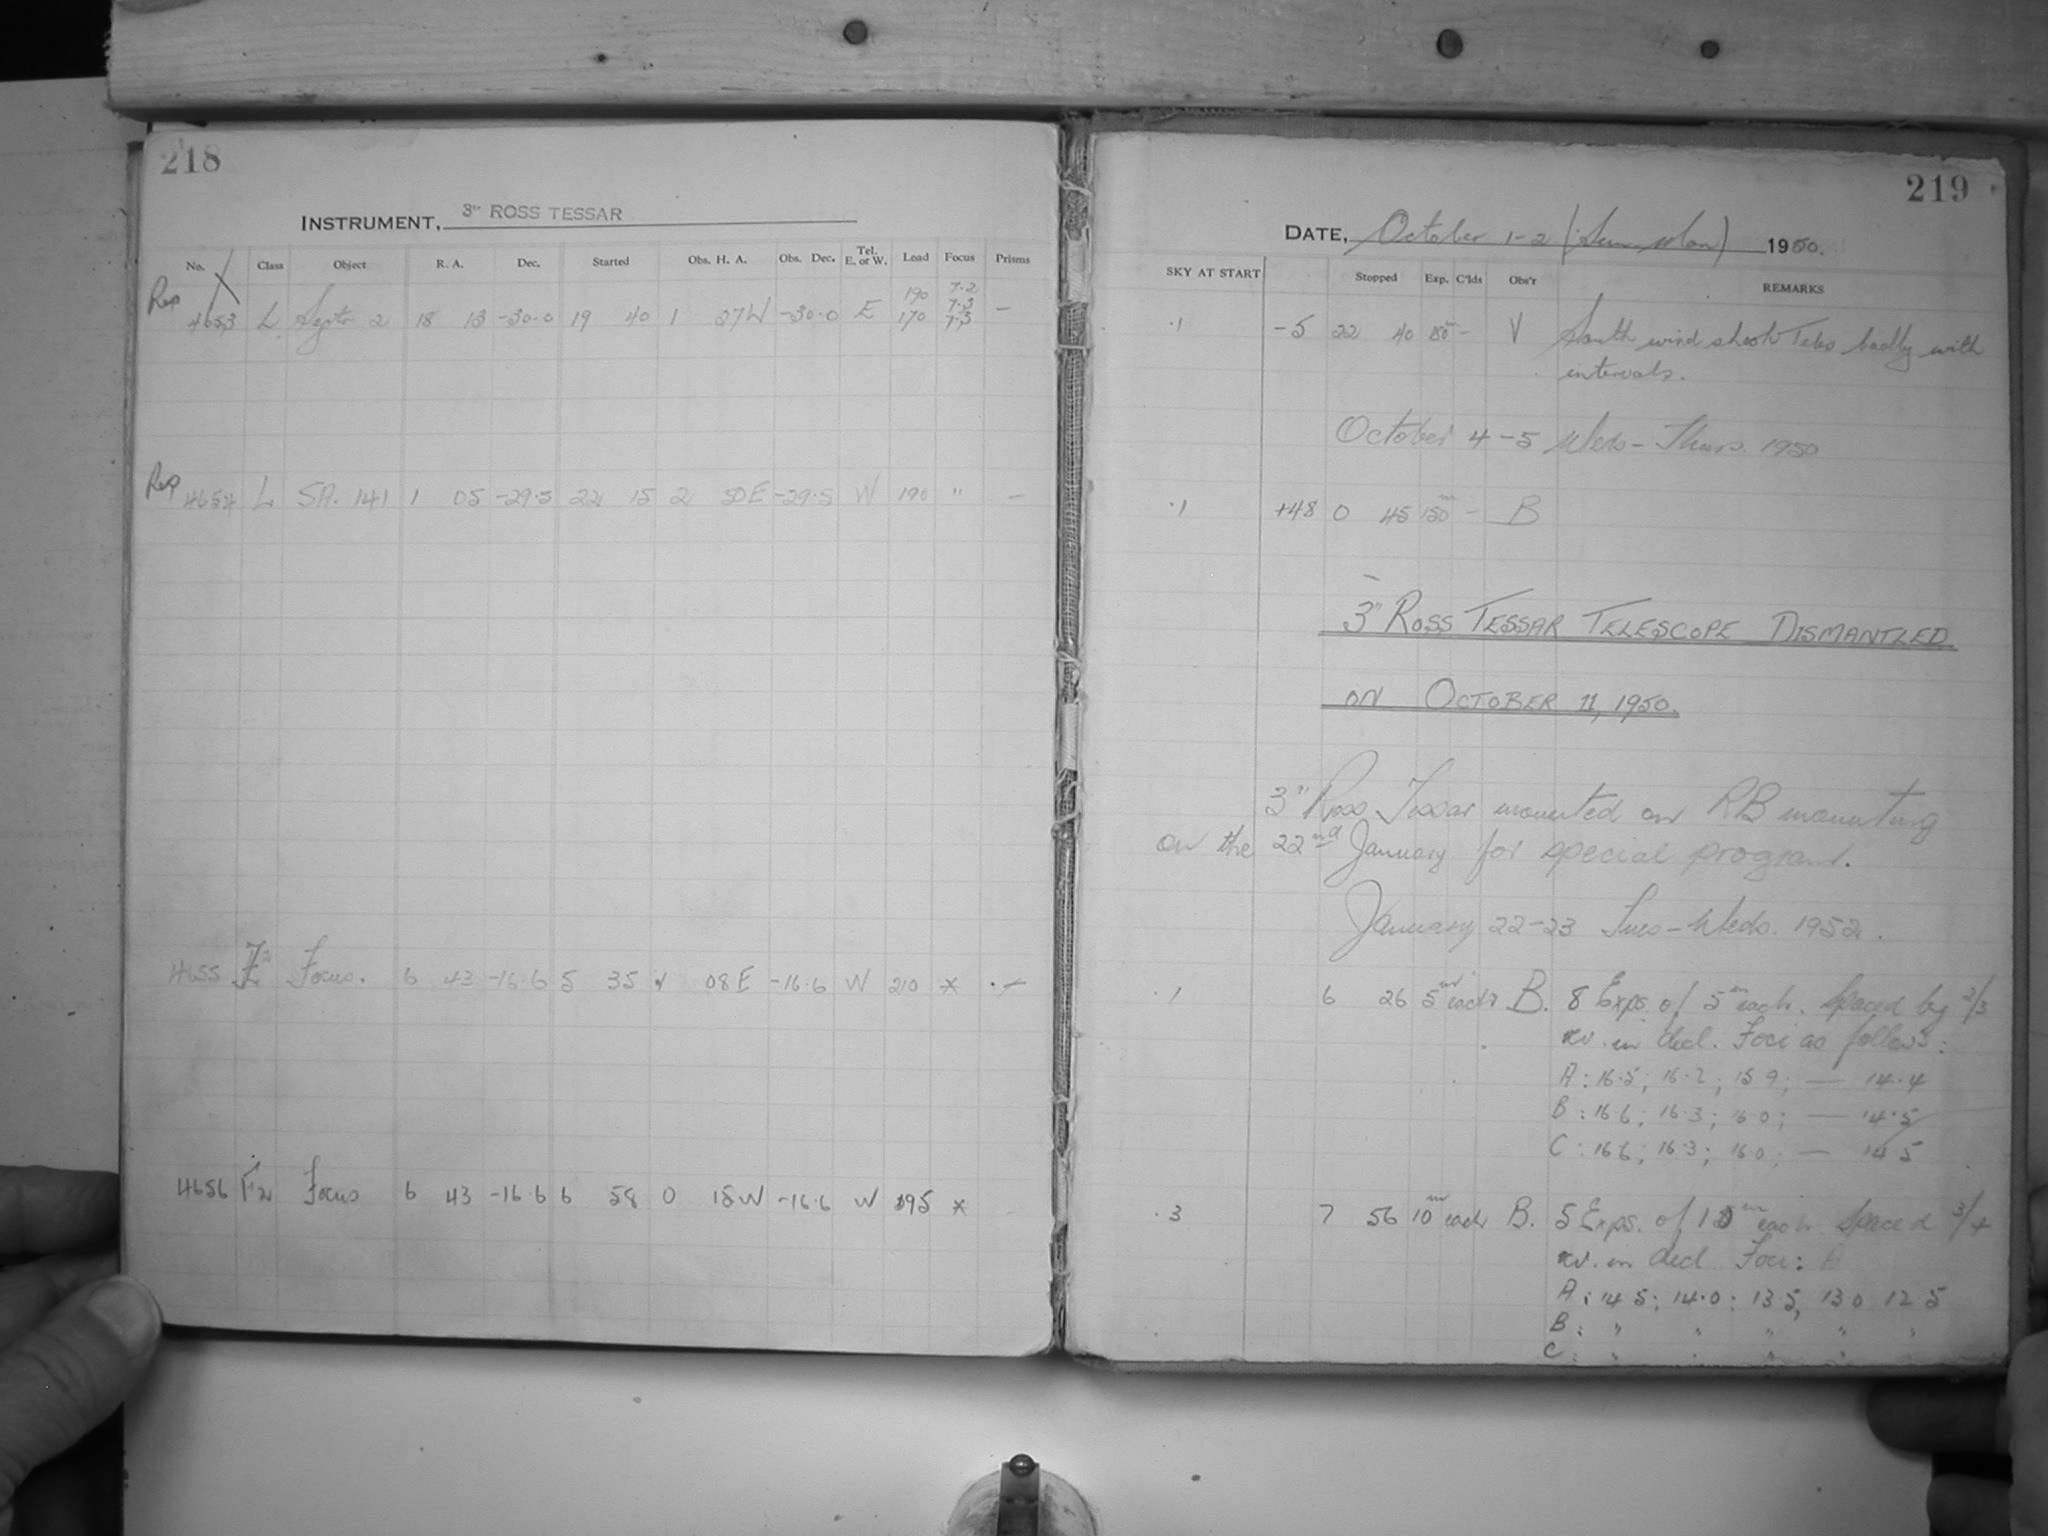 218
INSTRUMENT, 3" ROSS TESSAR
No. Class Object R. A. Dec. Started Obs. H. A. Obs. Dec. Tel. E. or W. Load Focus Prisms
Rep 4653 L Septr 2 18 13 -30.0 19 40 1 27W -30.0 E 190 170 7.2 7.3 7.3 —
Rep 4654 L SA. 141 1 05 -29.5 22 15 2 50E -29.5 W 190 " —
4655 Focus. 6 43 -16.6 5 35 08E -16.6 W 210 *
4656 Focus 6 43 -16.6 6 58 0 15W -16.6 W 195 *
219
DATE, October 1-2 (Sun-Mon) 1950.
SKY AT START Stopped Exp. C'lds Obs'r REMARKS
.1 -5 22 40 180m - V South wind shook Teles badly with
intervals.
October 4-5 Weds-Thurs. 1950
.1 +48 0 45 150m - B
3" ROSS TESSAR TELESCOPE DISMANTLED
ON OCTOBER 11, 1950.
3" Ross Tessar mounted on RB mounting
on the 22nd January for special program.
January 22-23 Tues-Weds. 1952.
.1 6 26 5m each B. 8 Exps. of 5m each. Spaced by 2/3
rev. in decl. Foci as follows:
A: 16.5; 16.2; 15.9; — 14.4
B: 16.6; 16.3; 16.0; — 14.5
C: 16.6; 16.3; 16.0; — 14.5
.3 7 56 10m each B. 5 Exps. of 10m each Spaced 3/4
rev. in decl. Foci: A
A: 14.5; 14.0; 13.5, 13.0 12.5
B: " " " " "
C: " " " " "